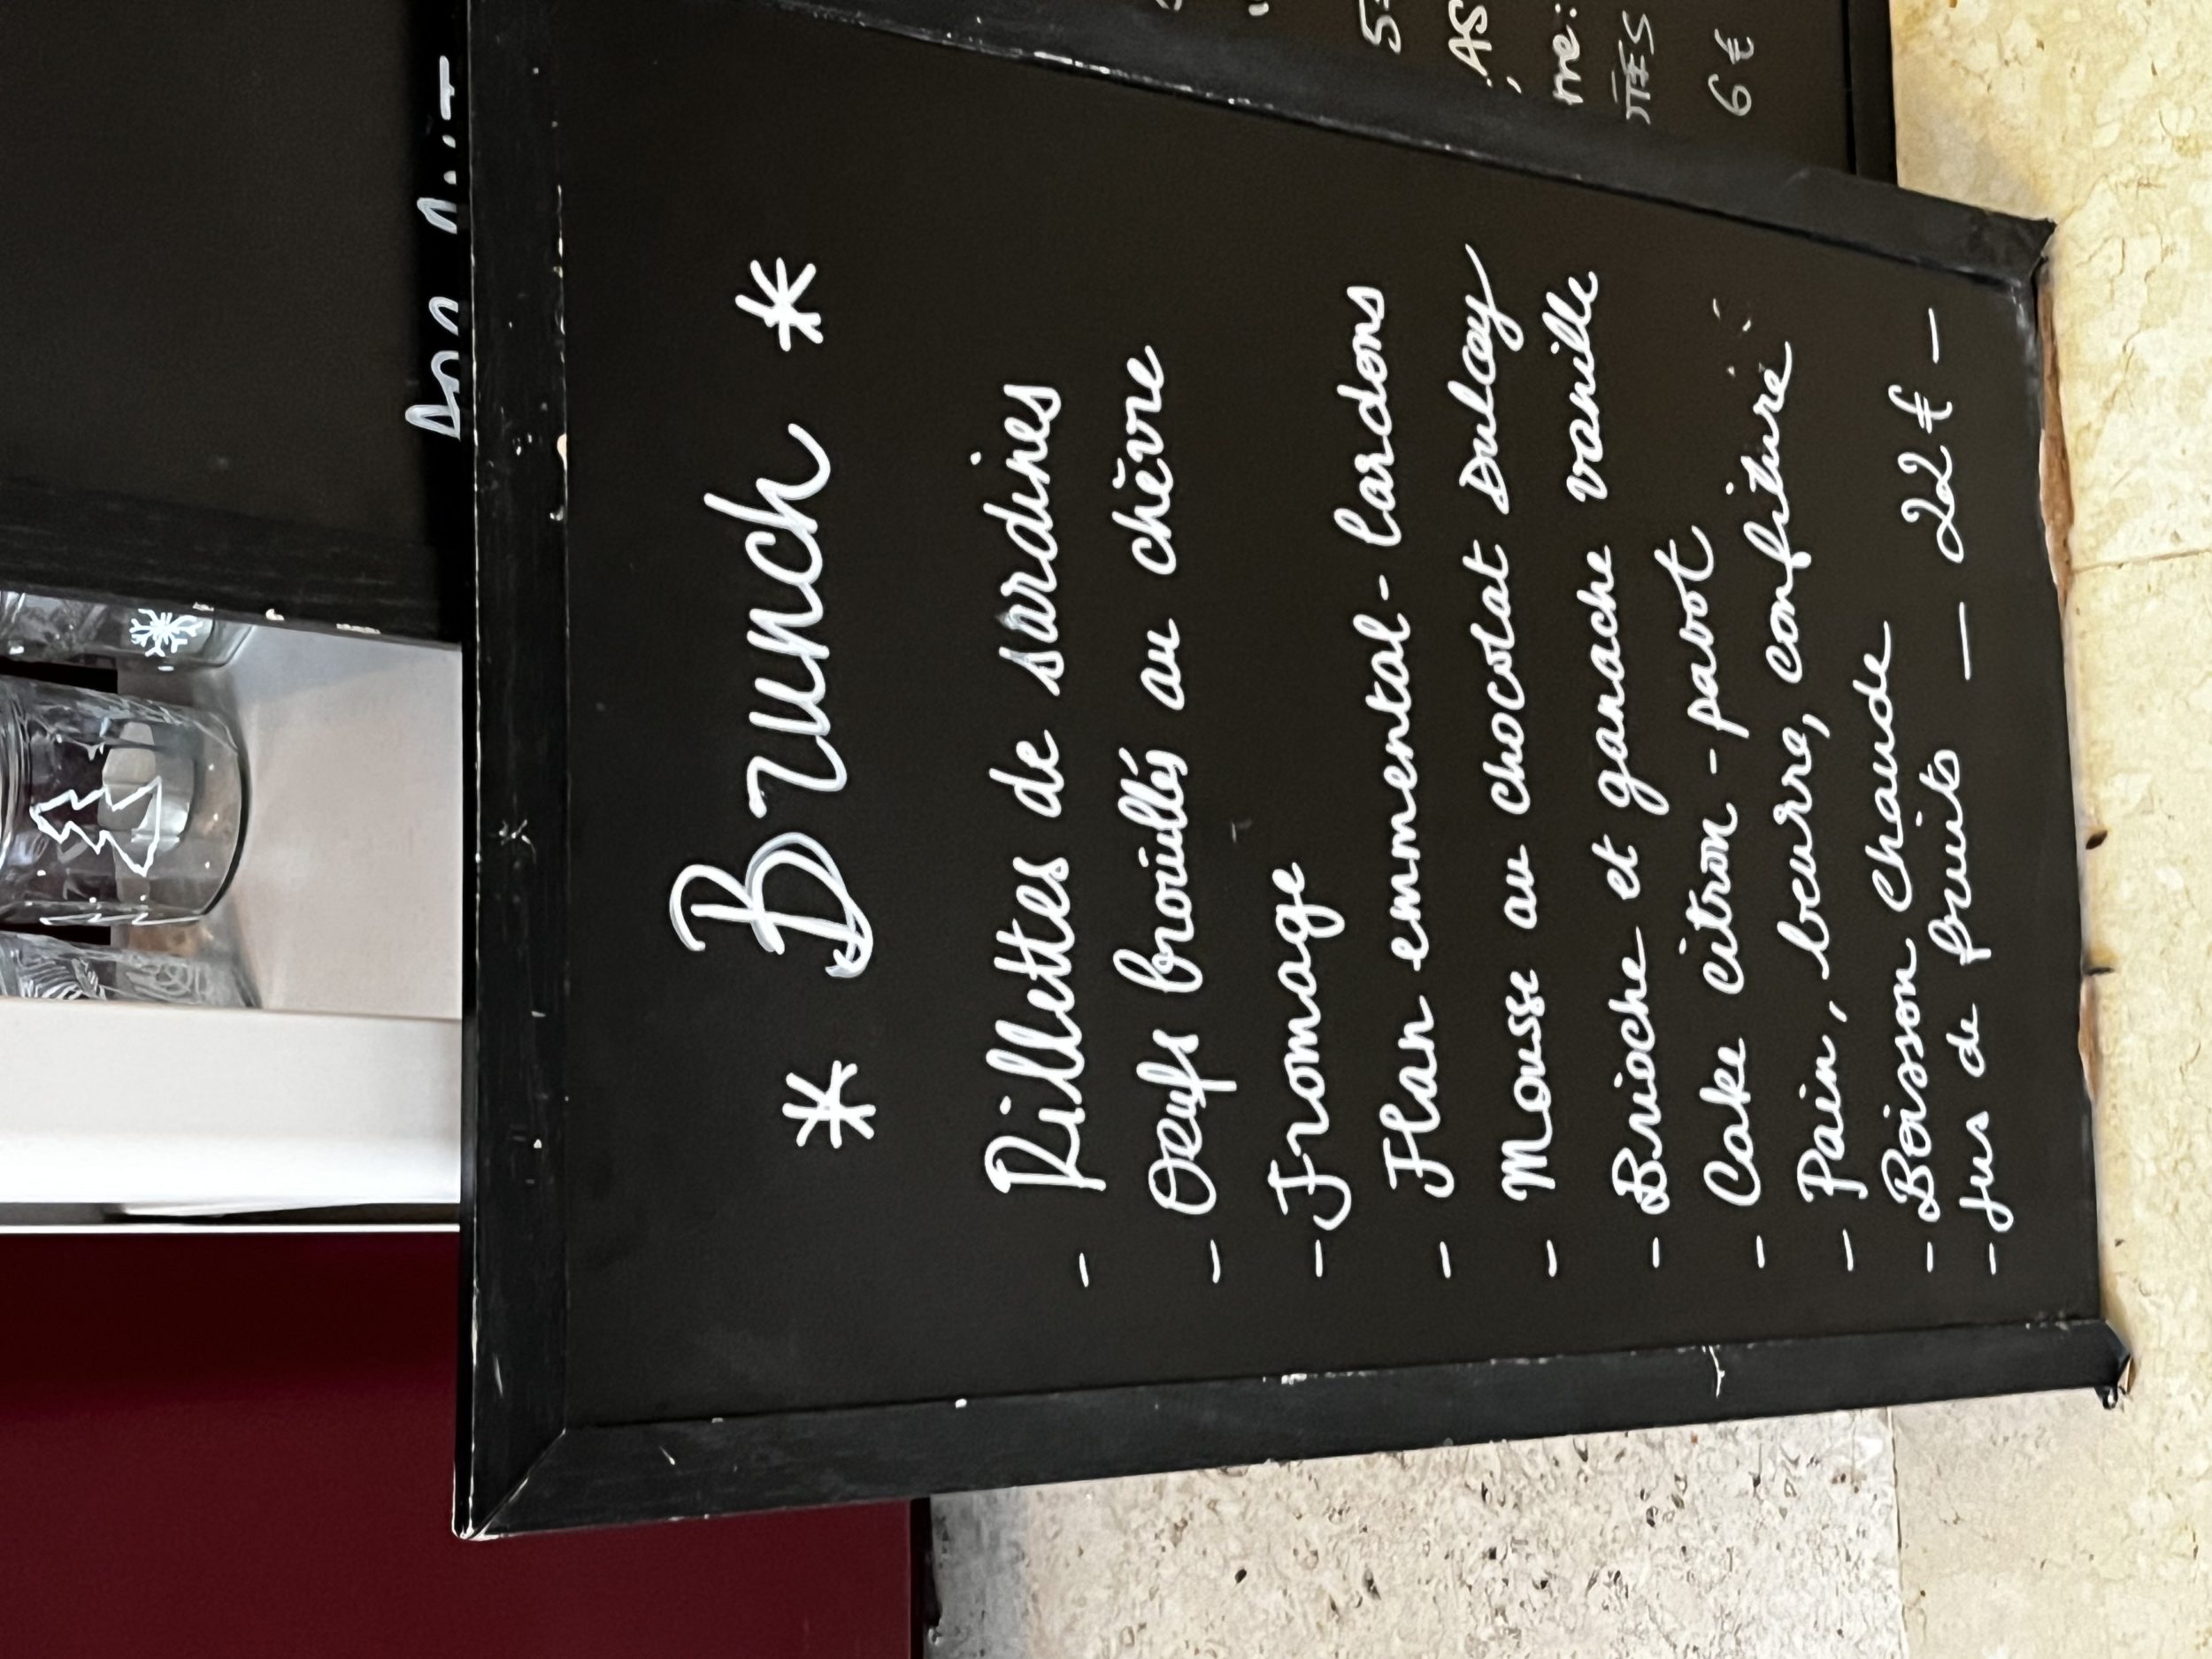 * Brunch *
- Rillettes de sardines
- Oeufs brouillés au chèvre
- Fromage
- Flan emmental - lardons
- Mousse au chocolat Dulcey
- Brioche et ganache vanille
- Cake citron - pavot
- Pain, beurre, confiture
- Boisson chaude
- Jus de fruits — 22 € -
6 €